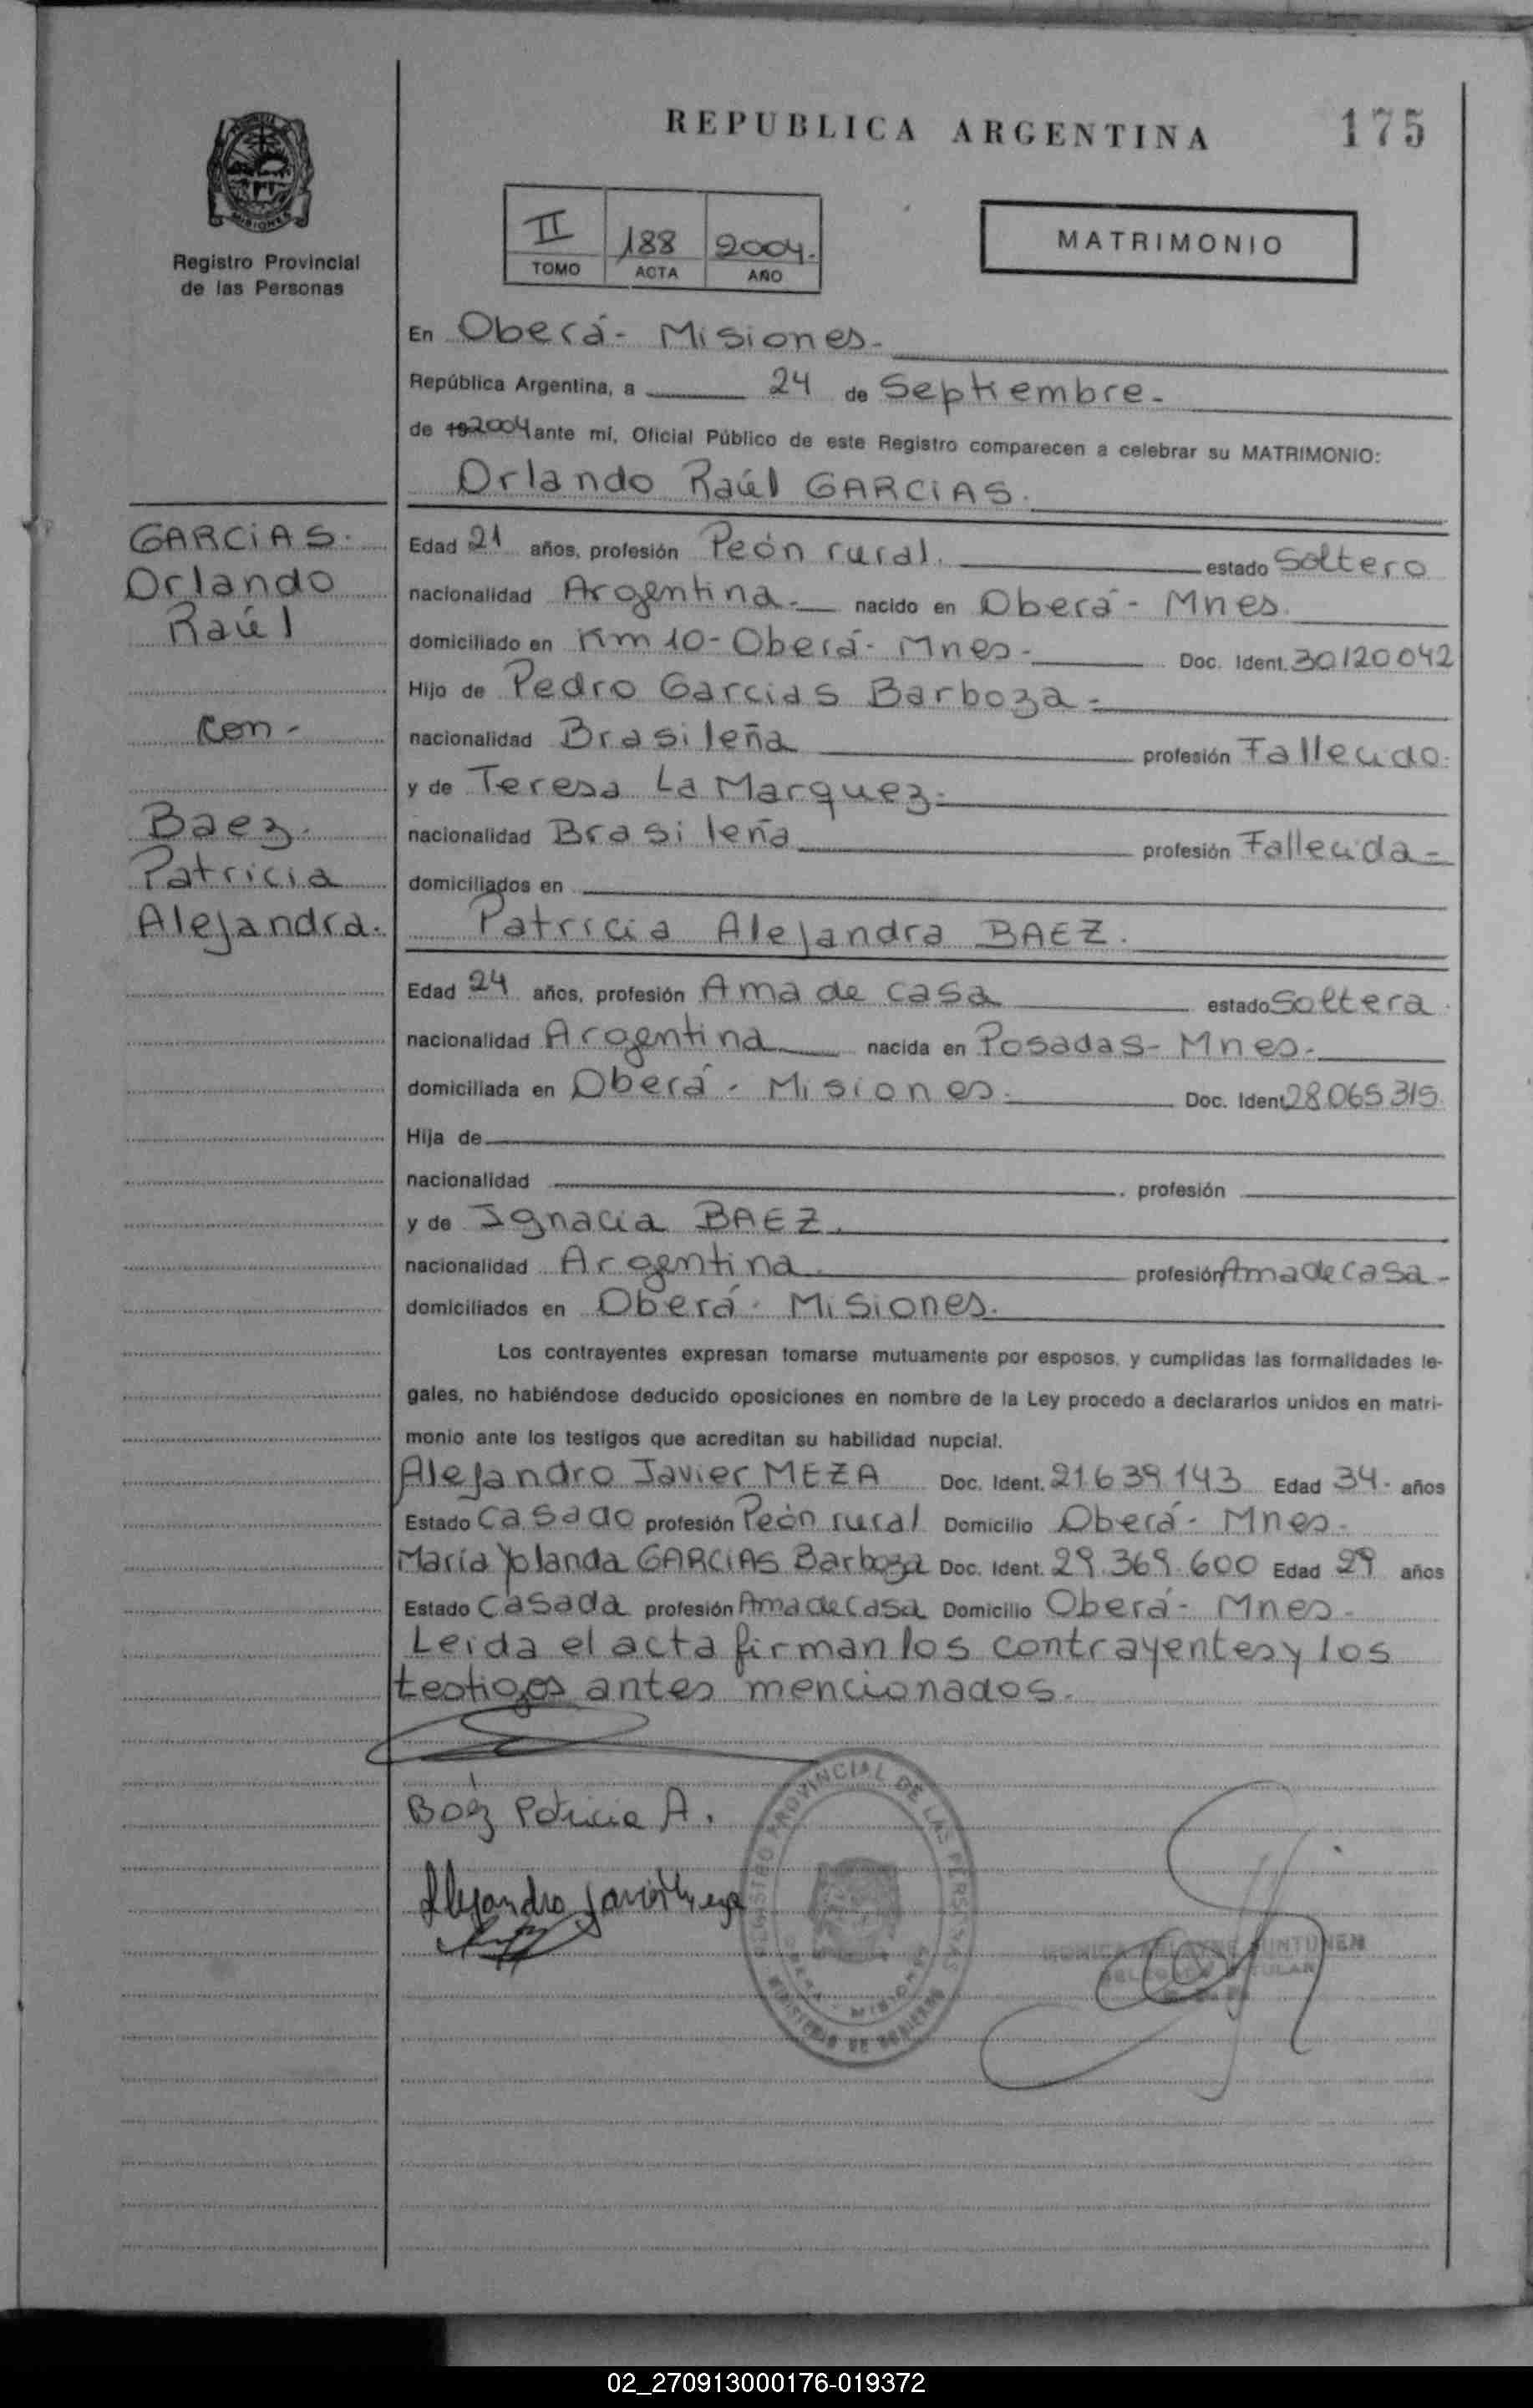 REPUBLICA ARGENTINA
175
MISIONES
Registro Provincial
de las Personas
II 188 2004.
TOMO ACTA AÑO
MATRIMONIO
En Oberá- Misiones-
República Argentina, a 24 de Septiembre-
de 192004 ante mí, Oficial Público de este Registro comparecen a celebrar su MATRIMONIO:
Orlando Raúl GARCIAS.
GARCIAS.
Orlando
Raúl
con-
Baez.
Patricia
Alejandra.
Edad 21 años, profesión Peón rural. estado Soltero
nacionalidad Argentina- nacido en Oberá- Mnes.
domiciliado en Km 10-Oberá- Mnes- Doc. Ident. 30120042
Hijo de Pedro Garcias Barboza-
nacionalidad Brasileña profesión Fallecido.
y de Teresa La Marquez-
nacionalidad Brasileña profesión Fallecida-
domiciliados en
Patricia Alejandra BAEZ.
Edad 24 años, profesión Ama de casa estado Soltera
nacionalidad Argentina nacida en Posadas- Mnes.
domiciliada en Oberá- Misiones. Doc. Ident. 28.065.315
Hija de
nacionalidad profesión
y de Ignacia BAEZ.
nacionalidad Argentina. profesión Ama de casa-
domiciliados en Oberá- Misiones.
Los contrayentes expresan tomarse mutuamente por esposos, y cumplidas las formalidades le-
gales, no habiéndose deducido oposiciones en nombre de la Ley procedo a declararlos unidos en matri-
monio ante los testigos que acreditan su habilidad nupcial.
Alejandro Javier MEZA Doc. Ident. 21.639.143 Edad 34. años
Estado Casado profesión Peón rural Domicilio Oberá- Mnes-
María Yolanda GARCIAS Barboza Doc. Ident. 29.369.600 Edad 29 años
Estado Casada profesión Ama de Casa Domicilio Oberá- Mnes-
Leida el acta firman los contrayentes y los
testigos antes mencionados-
Baéz Patricia A.
Alejandro Javier Meza
REGISTRO PROVINCIAL DE LAS PERSONAS
OBERA - MISIONES
MINISTERIO DE GOBIERNO
MONICA
DELEGADA TITULAR
02_270913000176-019372